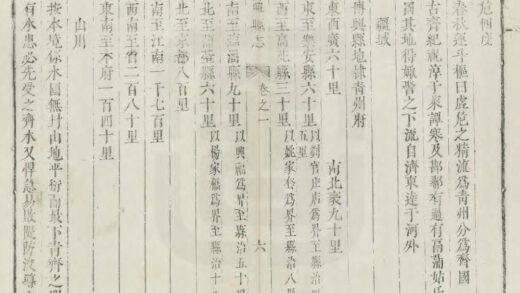 危四度
春秋運斗樞曰虛危之精流爲青州分爲齊國
古齊紀祝淳于萊譚寒及鄑郚有過有鬲蒲姑氏
國其地得濰淄之下流自濟東達于河外
疆域
興縣地隸青州府
東西廣六十里 南北袤九十里
東至樂安縣六十里 以劉官庄店爲界至縣治
五里
西至高苑縣三十里 以姚家 爲界至縣治八
興縣志 卷之一 六
南至 淄縣九十里 以興福爲界至縣治五十里
北至蒲臺縣六十里 以楊家 爲界至縣治十
北至京都八百里
南至江南一千七百里
西南至省二百八十里
東南至本府一百四十里
山川
按本境係水國無封山地平衍而窊下青齊之
有水患必先受之齊水又悍急易敗隄防沒